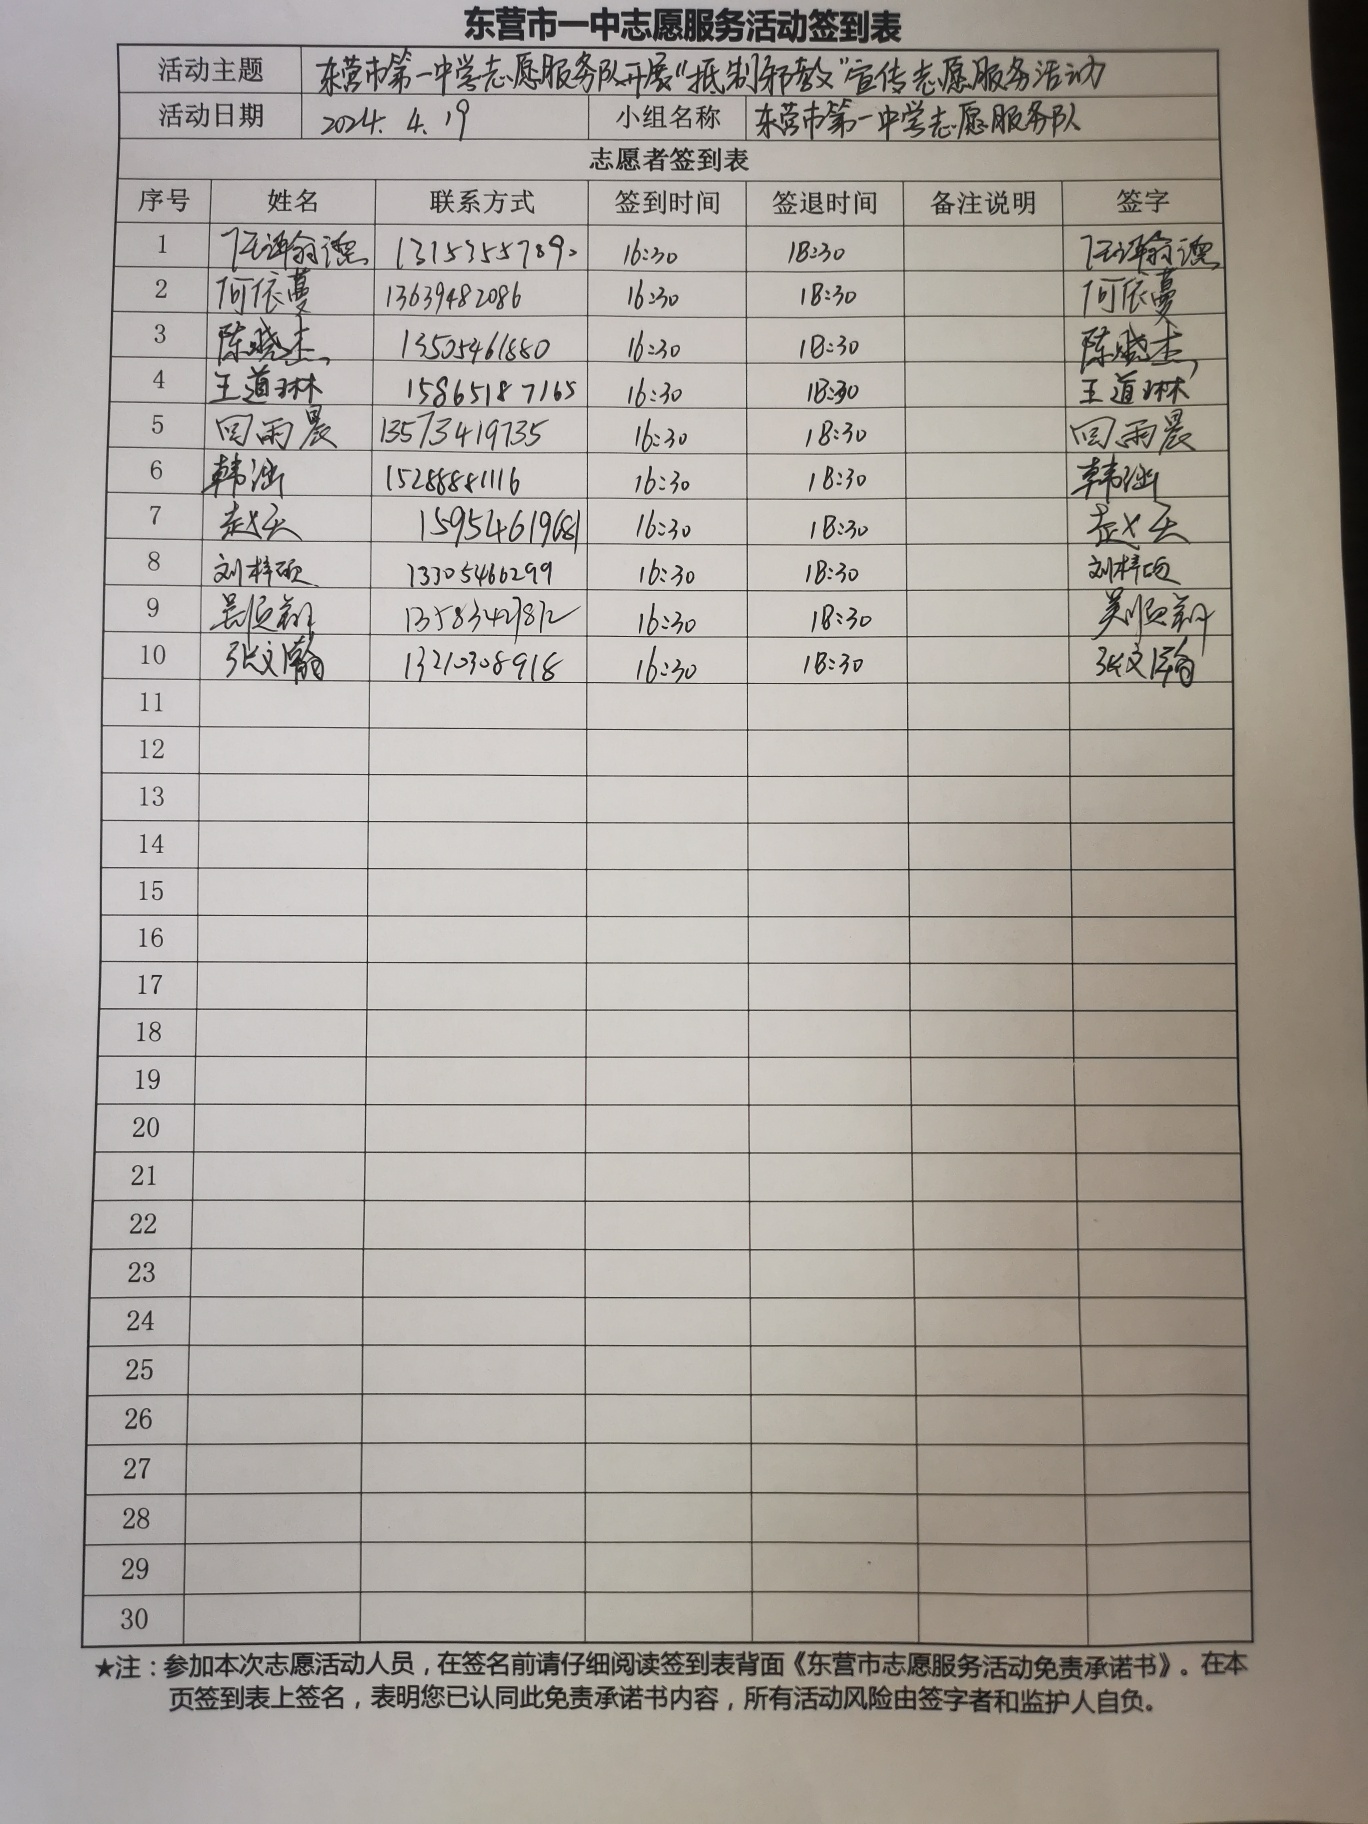 东营市一中志愿服务活动签到表
活动主题 东营市第一中学志愿服务队开展“抵制邪教”宣传志愿服务活动
活动日期 2024.4.19 小组名称 东营市第一中学志愿服务队
志愿者签到表
序号 姓名 联系方式 签到时间 签退时间 备注说明 签字
1 16:30 18:30
2 何依蔓 13639482086 16:30 18:30 何依蔓
3 陈晓杰 13505461880 16:30 18:30 陈晓杰
4 王道琳 15865187165 16:30 18:30 王道琳
5 回雨晨 13573419735 16:30 18:30 回雨晨
6 韩涵 15288881116 16:30 18:30 韩涵
7 15954619681 16:30 18:30
8 刘梓硕 13305466299 16:30 18:30 刘梓硕
9 吴顺翔 16:30 18:30 吴顺翔
10 张文瀚 13210308918 16:30 18:30 张文瀚
11
12
13
14
15
16
17
18
19
20
21
22
23
24
25
26
27
28
29
30
★注：参加本次志愿活动人员，在签名前请仔细阅读签到表背面《东营市志愿服务活动免责承诺书》。在本
页签到表上签名，表明您已认同此免责承诺书内容，所有活动风险由签字者和监护人自负。